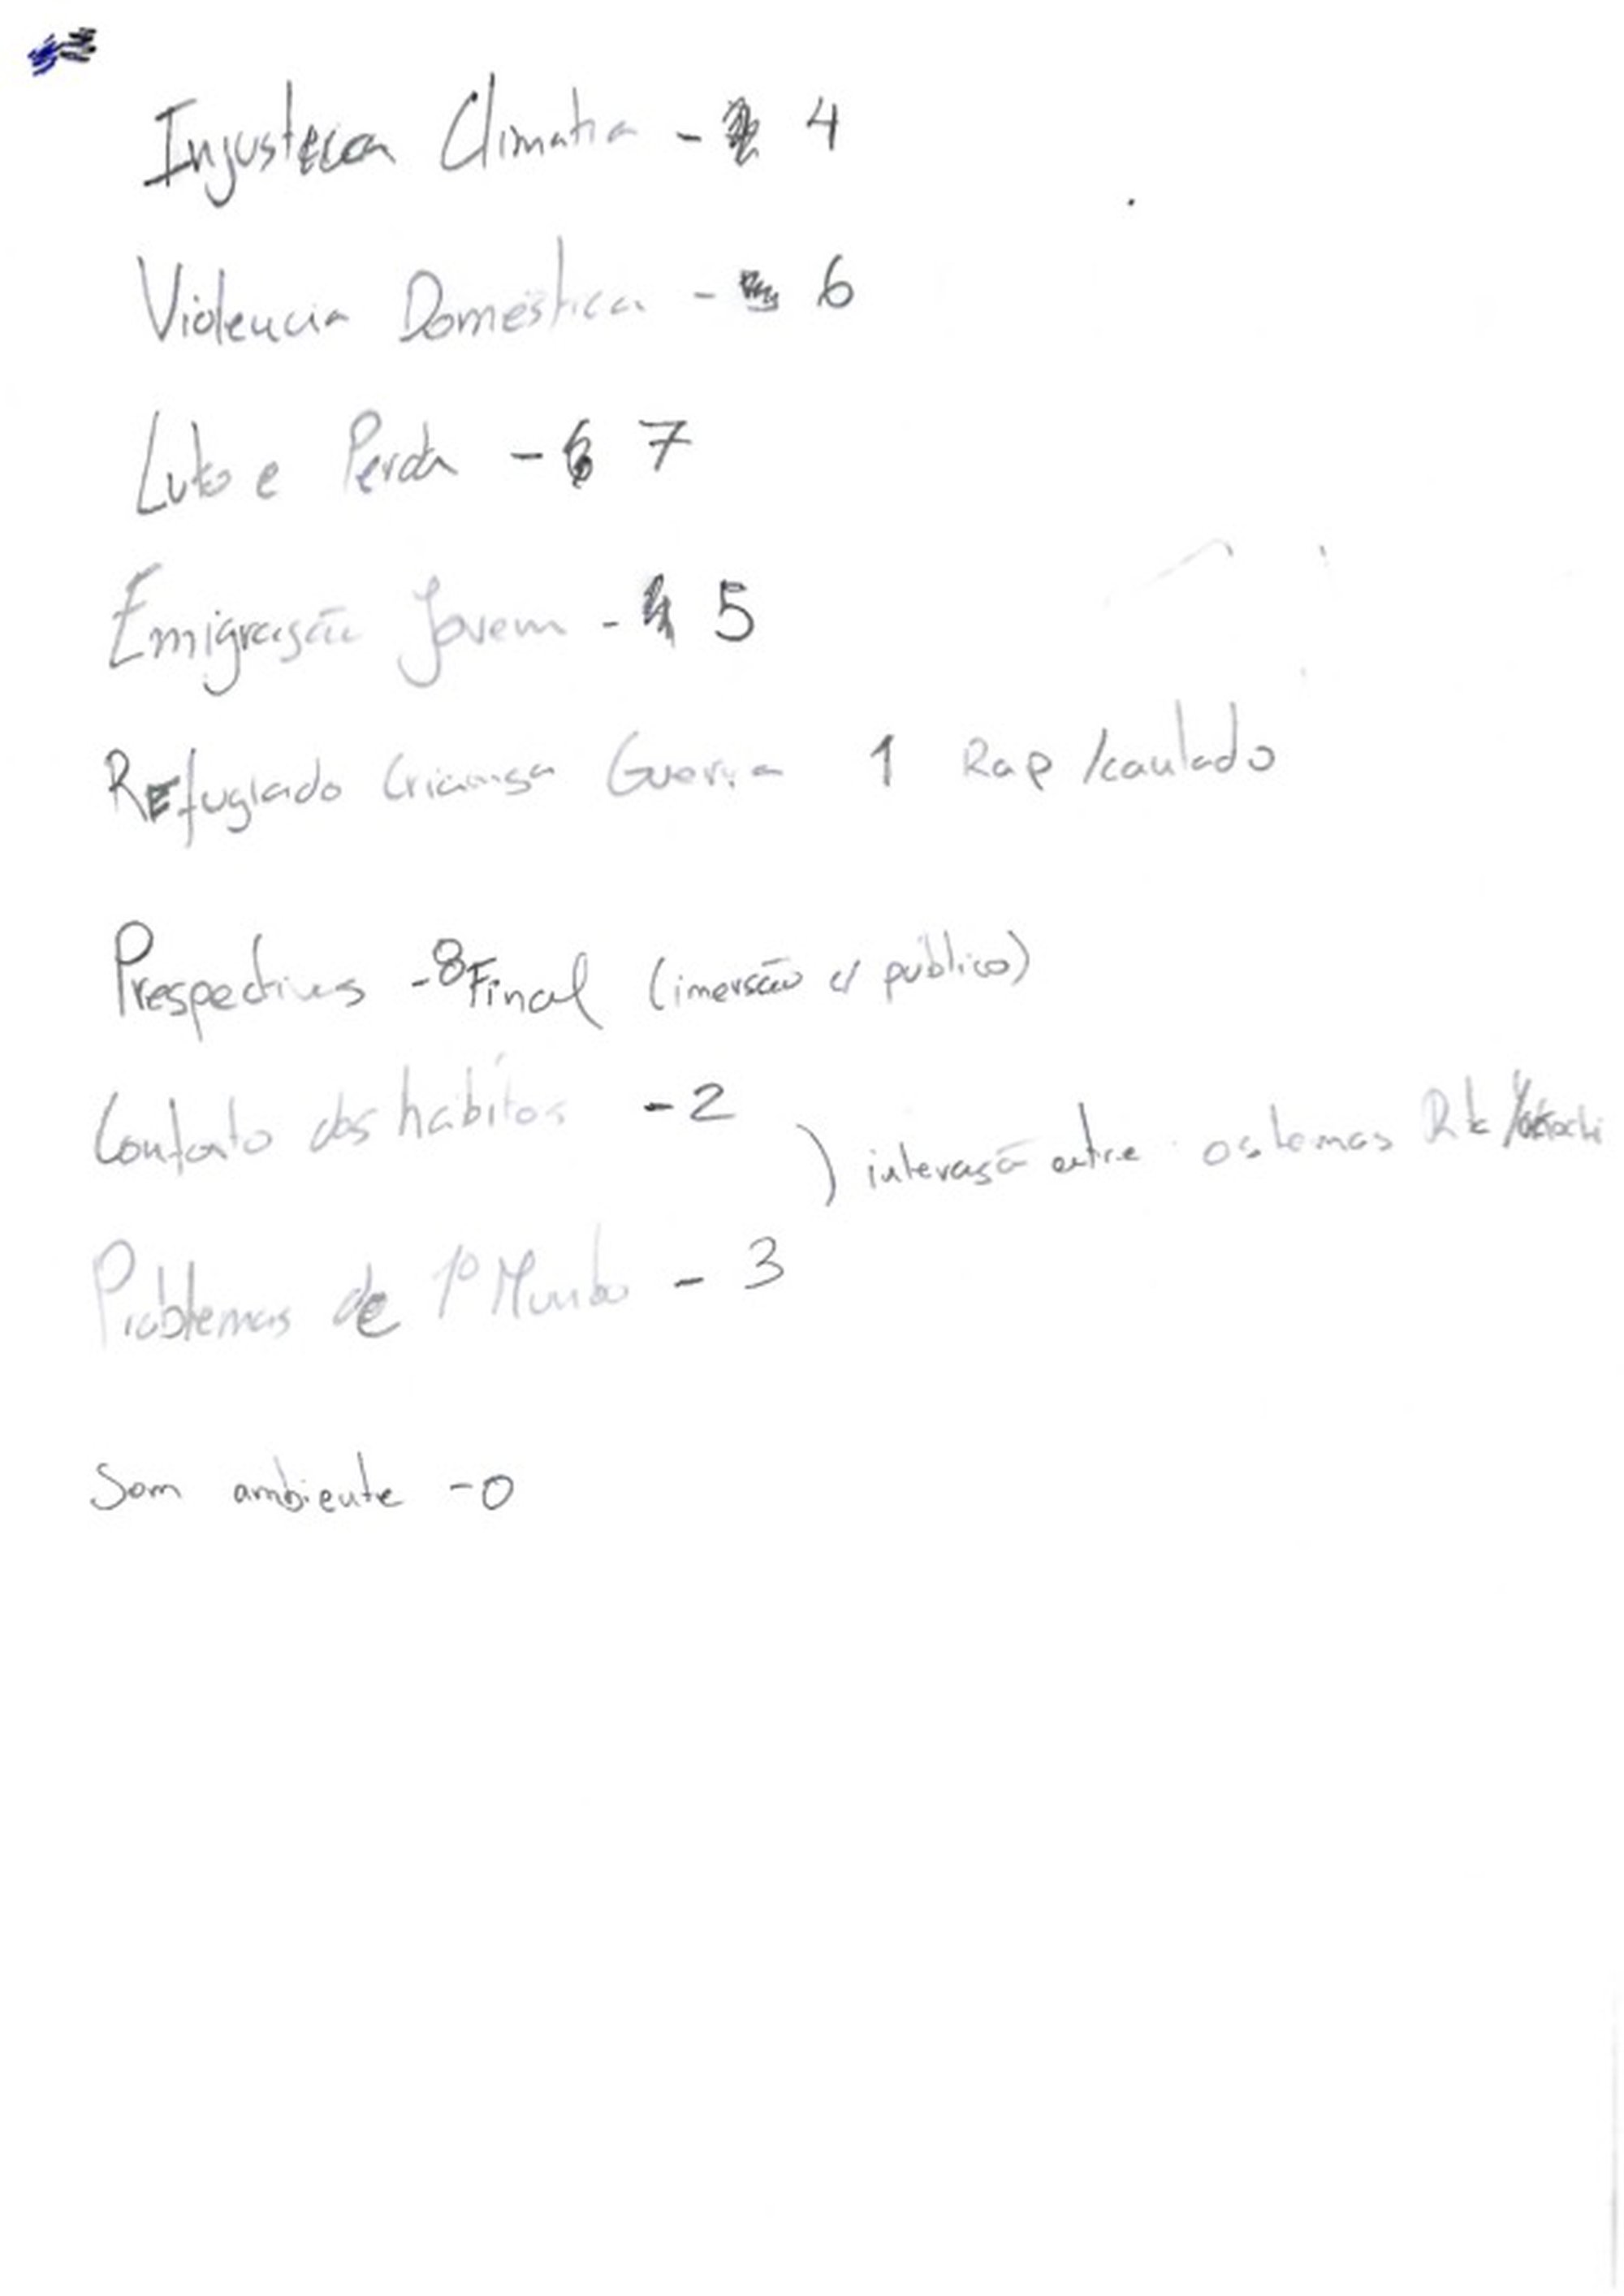 Injusticia Climatia - 4
Violencia Doméstica - 6
Luto e Perda - 7
Emigração Jovem - 5
Refugiado Criança Guerra 1 Rap /cantado
Prespectivas - 8 Final (imersão c/ público)
Conforto dos hábitos - 2
) interação entre os temas
Problemas de 1º Mundo - 3
Som ambiente - 0